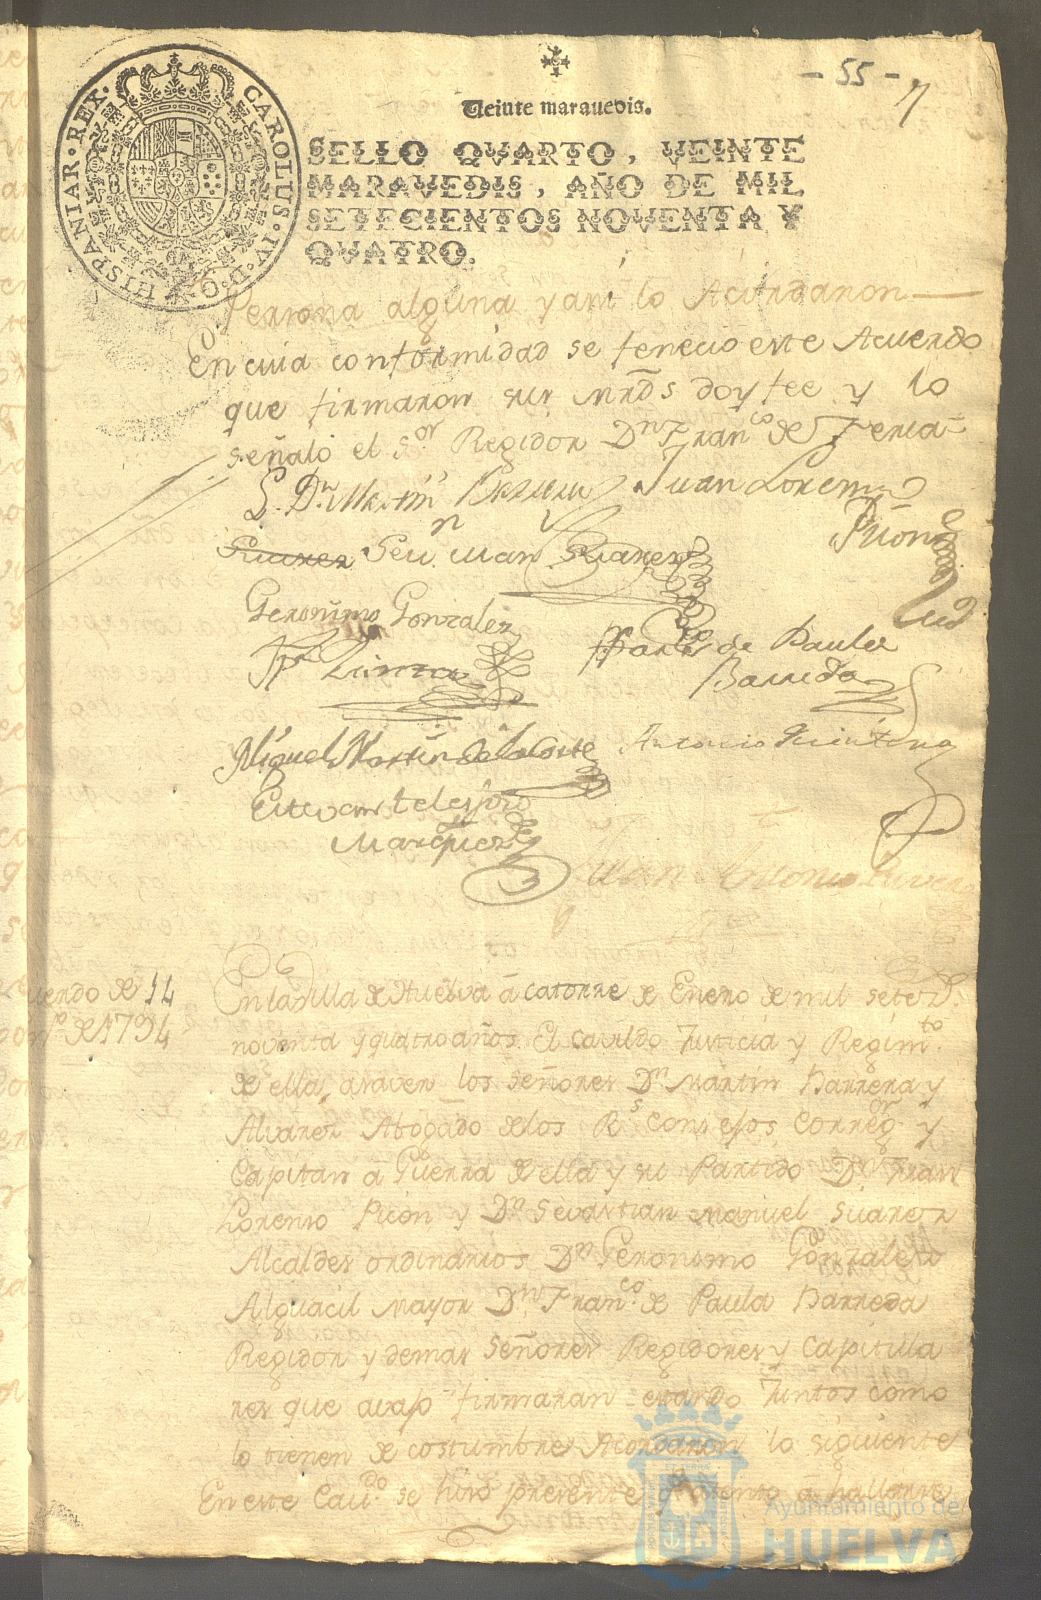 - 55 -
CAROLUS · IV · D · G · HISPANIAR · REX ·
Veinte marauedis.
SELLO QVARTO, VEINTE
MARAVEDIS, AÑO DE MIL
SETECIENTOS NOVENTA Y
QVATRO.
Persona alguna y asi lo Acordaron
En cuia conformidad se fenecio este Acuerdo
que firmaron sus mrds doy fee y lo
señaló el Sor Regidor Dn Franco de Feria
L. Dn Martin Barrera Juan Lorenzo
Picon
Suarez Sevn Man Suarez
Geronimo Gonzalez
Franco de Paula
Barreda
Miguel Martin de la Corte Antonio Quintero
Estevan telesforo
Marquez
Juan Antonio
uerdo de 14
de 1794
En la villa de Huelva á catorze de Enero de mil setezs
noventa y quatro años. El Cavildo Justicia y Regimto
de ella, asaver los señores Dn Martin Barrera y
Alvarez Abogado de los Rs Consejos, Corregor y
Capitan a Guerra de ella y su Partido Dn Juan
Lorenzo Picon y Dn Sevastian Manuel Suarez
Alcaldes ordinarios, Dn Geronimo Gonzalez
Alguacil Mayor Dn Franco de Paula Barreda
Regidor y demas Señores Regidores y Capitula
res que avajo firmaran estando Juntos como
lo tienen de costumbre Acordaron lo siguiente
En este Cavdo se hizo presente a hallarse
Ayuntamiento de
HUELVA